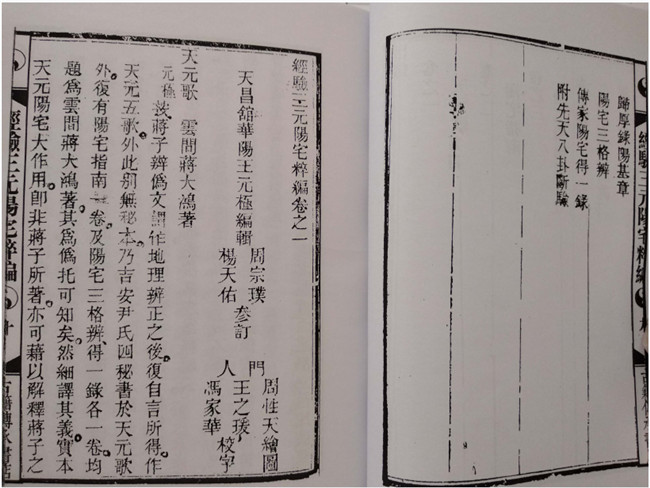 經驗三元陽宅粹編
歸厚錄陽基章
陽宅三格辨
傳家陽宅得一錄
附先天八卦斷驗
經驗三元陽宅粹編卷之一
天昌舘華陽王元極編輯
周宗璞
楊天佑
參訂
門人
周性天繪圖
王之瑗
馮家華
校字
天元歌 雲間蔣大鴻著
元極按蔣子辨僞文謂作地理辨正之後復自言所得作
天元五歌外此别無秘本乃吉安尹氏四秘書於天元歌
外復有陽宅指南一卷及陽宅三格辨得一錄各一卷均
題爲雲間蔣大鴻著其爲僞托可知矣然細譯其義實本
天元陽宅大作用即非蔣子所著亦可藉以解釋蔣子之
經驗三元陽宅粹編
十